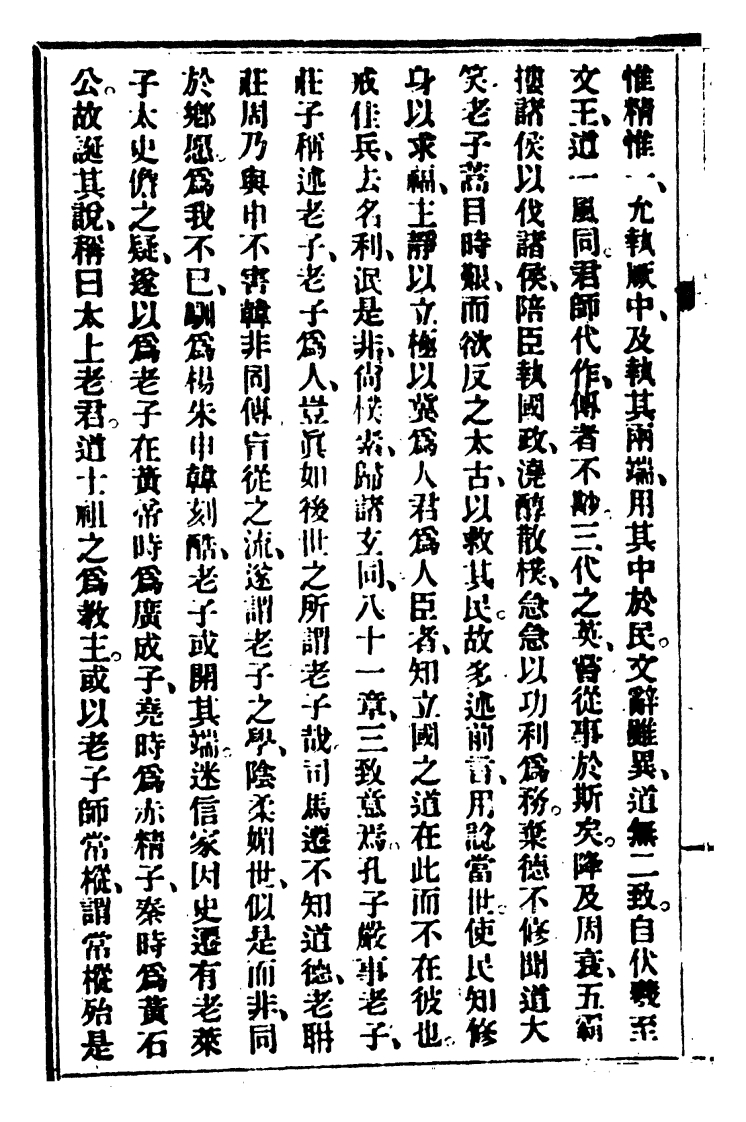 惟精惟一、允執厥中、及執其兩端、用其中於民。文辭雖異、道無二致。自伏羲至
文王、道一風同。君師代作、傳者不尠。三代之英、嘗從事於斯矣。降及周衰、五霸
摟諸侯以伐諸侯、陪臣執國政、澆醇散樸、急急以功利爲務。棄德不修、聞道大
笑。老子蒿目時艱、而欲反之太古、以救其民。故多述前言、用諗當世。使民知修
身以求福、主靜以立極、以冀爲人君爲人臣者、知立國之道在此而不在彼也。
戒佳兵、去名利、泯是非、尙樸素、歸諸玄同、八十一章、三致意焉。孔子嚴事老子、
莊子稱述老子、老子爲人、豈眞如後世之所謂老子哉。司馬遷不知道德、老聃
莊周乃與申不害韓非同傳、盲從之流、遂謂老子之學、陰柔媚世、似是而非、同
於鄕愿。爲我不已、馴爲楊朱申韓刻酷、老子或開其端。迷信家因史遷有老萊
子太史儋之疑、遂以爲老子在黃帝時爲廣成子、堯時爲赤精子、秦時爲黃石
公。故誕其說、稱曰太上老君。道士祖之爲教主。或以老子師常樅、謂常樅殆是